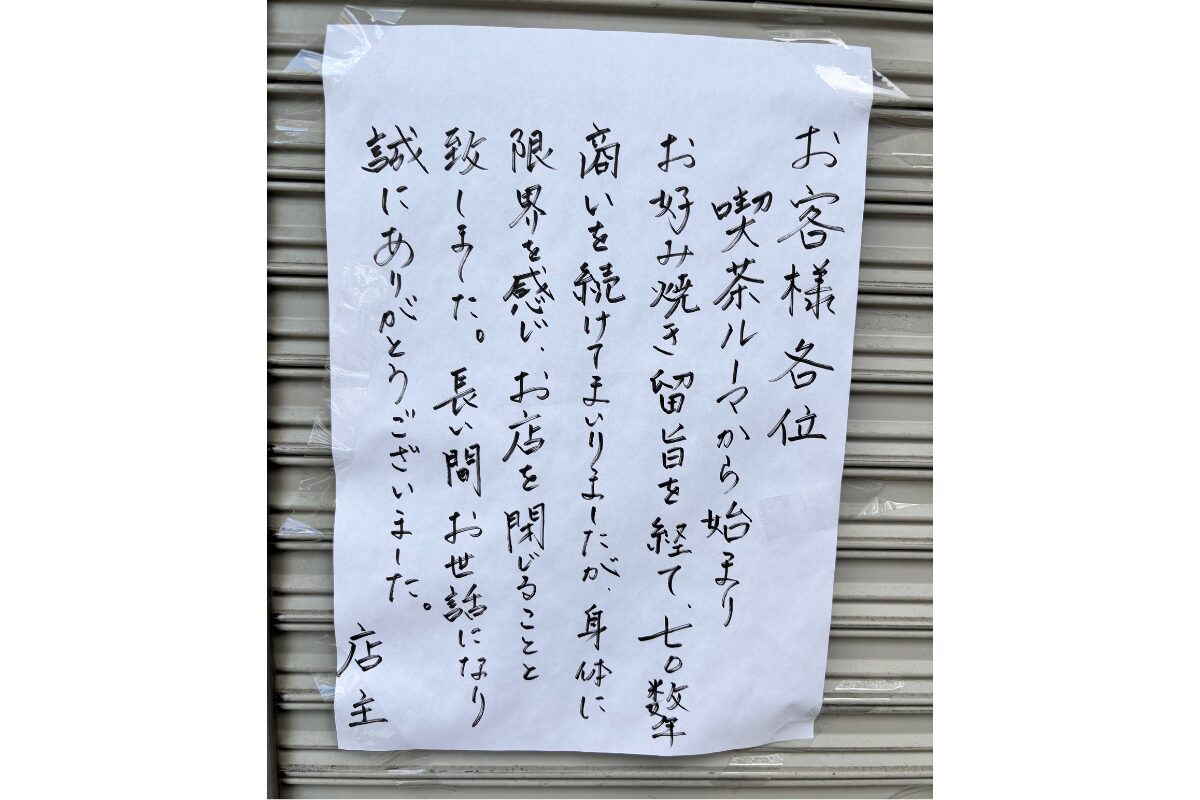 お客様各位
喫茶ルーマから始まり
お好み焼き留旨を経て、七〇数年
商いを続けてまいりましたが、身体に
限界を感じ、お店を閉じることと
致しました。長い間お世話になり
誠にありがとうございました。
店主